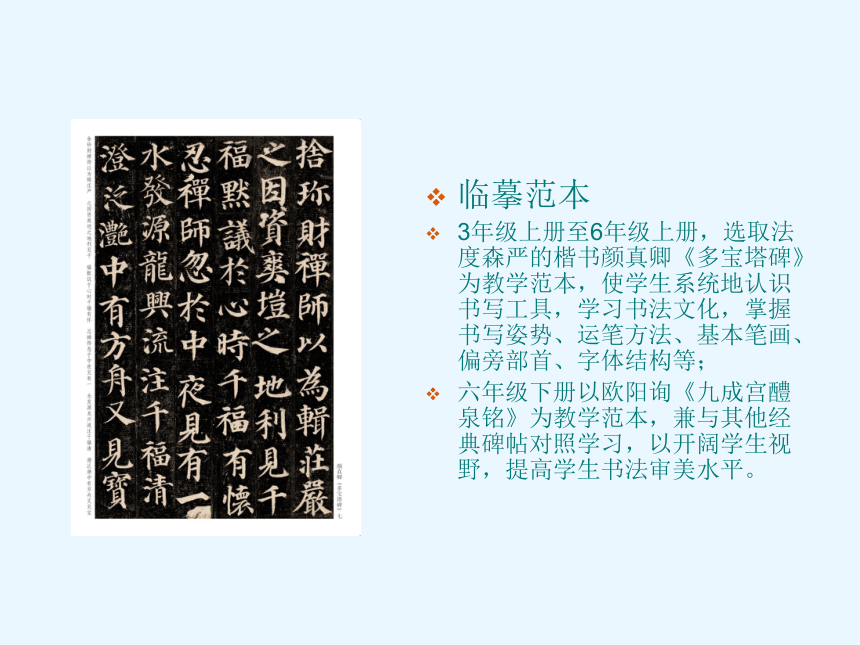 捨珎財禪師以為輯莊嚴
之因資爽塏之地利見千
福默議於心時千福有懷
忍禪師忽於中夜見有一
水發源龍興流注千福清
澄泛灩中有方舟又見寶
颜真卿《多宝塔碑》七
临摹范本
3年级上册至6年级上册，选取法
度森严的楷书颜真卿《多宝塔碑》
为教学范本，使学生系统地认识
书写工具，学习书法文化，掌握
书写姿势、运笔方法、基本笔画、
偏旁部首、字体结构等；
六年级下册以欧阳询《九成宫醴
泉铭》为教学范本，兼与其他经
典碑帖对照学习，以开阔学生视
野，提高学生书法审美水平。